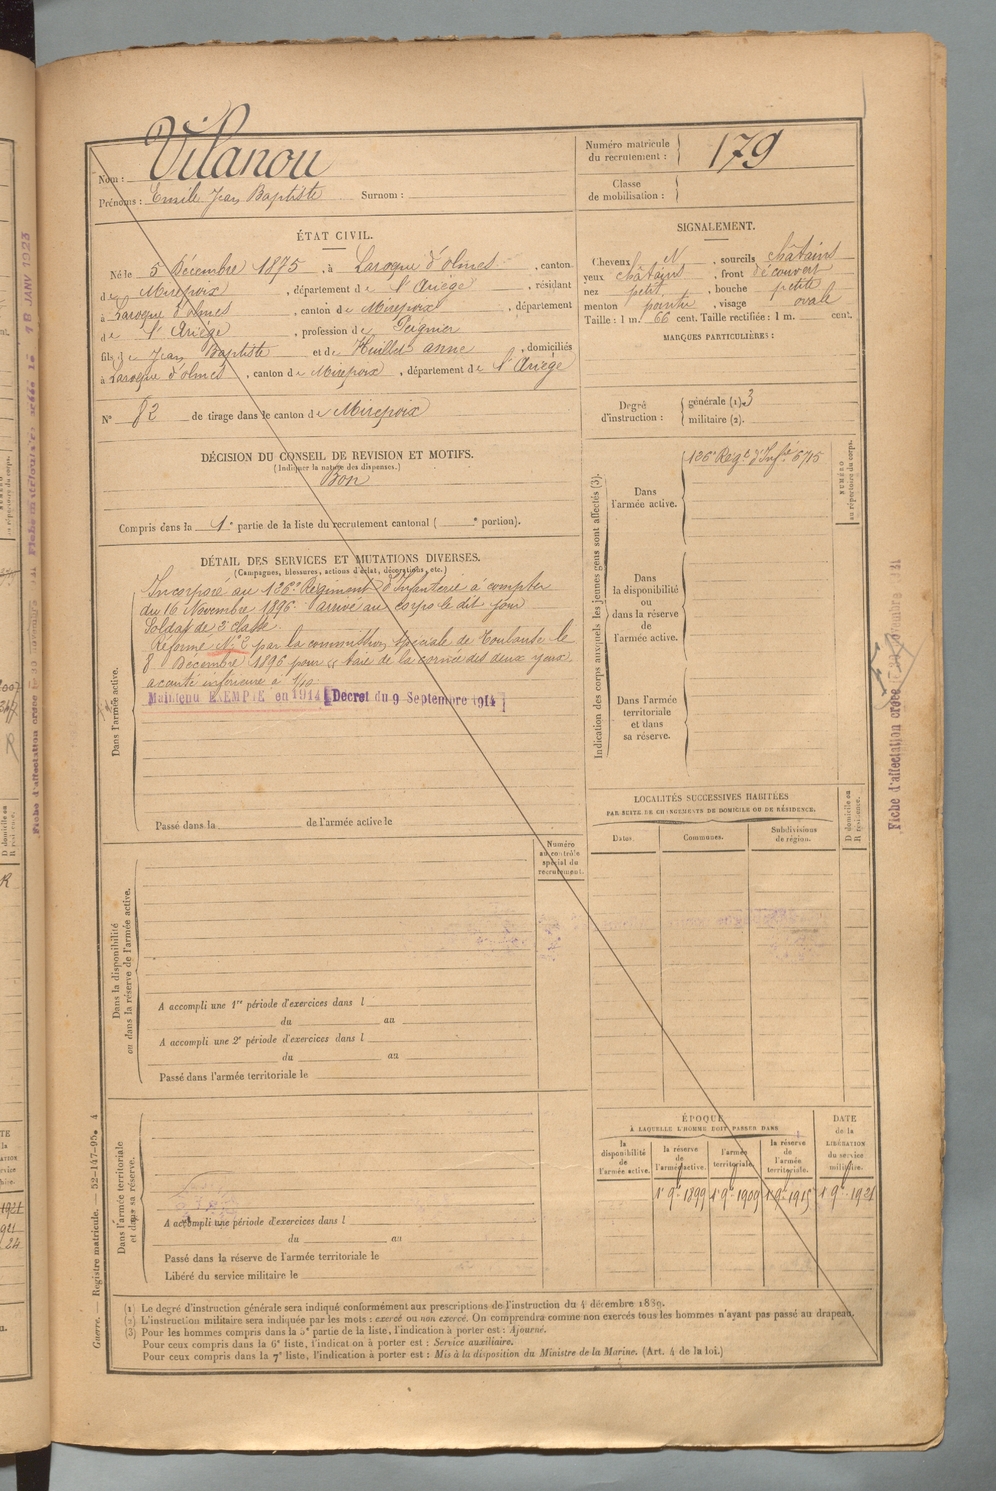 Nom : Vilanou
Prénoms : Emile Jean Baptiste Surnom :
Numéro matricule du recrutement : 179
Classe de mobilisation :
ÉTAT CIVIL.
Né le 5 Décembre 1875, à Laroque d'olmes, canton
de Mirepoix, département de l'Ariège, résidant
à Laroque d'olmes, canton de Mirepoix, département
de l'Ariège, profession de Peignier
fils de Jean Baptiste et de Huillet anne, domiciliés
à Laroque d'olmes, canton de Mirepoix, département de l'Ariège
N° 82 de tirage dans le canton de Mirepoix
SIGNALEMENT.
Cheveux N, sourcils châtains
yeux châtains, front découvert
nez petit, bouche petite
menton pointu, visage ovale
Taille : 1 m. 66 cent. Taille rectifiée : 1 m. cent.
MARQUES PARTICULIÈRES :
Degré d'instruction : générale (1). 3
militaire (2).
DÉCISION DU CONSEIL DE REVISION ET MOTIFS.
(Indiquer la nature des dispenses.)
Bon
Compris dans la 1e partie de la liste du recrutement cantonal ( e portion).
DÉTAIL DES SERVICES ET MUTATIONS DIVERSES.
(Campagnes, blessures, actions d'éclat, décorations, etc.)
Dans l'armée active.
Incorporé au 126e Régiment d'Infanterie à compter
du 16 Novembre 1896. arrivé au corps le dit jour
Soldat de 2e classe
Réformé N° 2 par la commission spéciale de Toulouse le
8 Décembre 1896 pour "taie de la cornée des deux yeux
acuité inférieure à 1/10
Maintenu EXEMPTE en 1914 [Décret du 9 Septembre 1914]
Passé dans la de l'armée active le
Indication des corps auxquels les jeunes gens sont affectés (3).
Dans l'armée active.
126e Regt d'Infie 6715
NUMÉRO au répertoire du corps.
Dans la disponibilité ou dans la réserve de l'armée active.
Dans l'armée territoriale et dans sa réserve.
Fiche d'affectation
LOCALITÉS SUCCESSIVES HABITÉES
PAR SUITE DE CHANGEMENTS DE DOMICILE OU DE RÉSIDENCE.
Dates. Communes. Subdivisions de région. D domicile ou R résidence.
Numéro au contrôle spécial du recrutement.
Dans la disponibilité ou dans la réserve de l'armée active.
A accompli une 1re période d'exercices dans l
du au
A accompli une 2e période d'exercices dans l
du au
Passé dans l'armée territoriale le
Dans l'armée territoriale et dans sa réserve.
A accompli une période d'exercices dans l
du au
Passé dans la réserve de l'armée territoriale le
Libéré du service militaire le
ÉPOQUE
À LAQUELLE L'HOMME DOIT PASSER DANS
la disponibilité de l'armée active.
la réserve de l'armée active.
l'armée territoriale.
la réserve de l'armée territoriale.
DATE de la LIBÉRATION du service militaire.
1er 9bre 1899 1er 9bre 1909 1er 9bre 1915 1er 9bre 1921
(1) Le degré d'instruction générale sera indiqué conformément aux prescriptions de l'instruction du 4 décembre 1889.
(2) L'instruction militaire sera indiquée par les mots : exercé ou non exercé. On comprendra comme non exercés tous les hommes n'ayant pas passé au drapeau.
(3) Pour les hommes compris dans la 5e partie de la liste, l'indication à porter est : Ajourné.
Pour ceux compris dans la 6e liste, l'indication à porter est : Service auxiliaire.
Pour ceux compris dans la 7e liste, l'indication à porter est : Mis à la disposition du Ministre de la Marine. (Art. 4 de la loi.)
Guerre. — Registre matricule. — 52-147-95. 4
18 JANV 1923